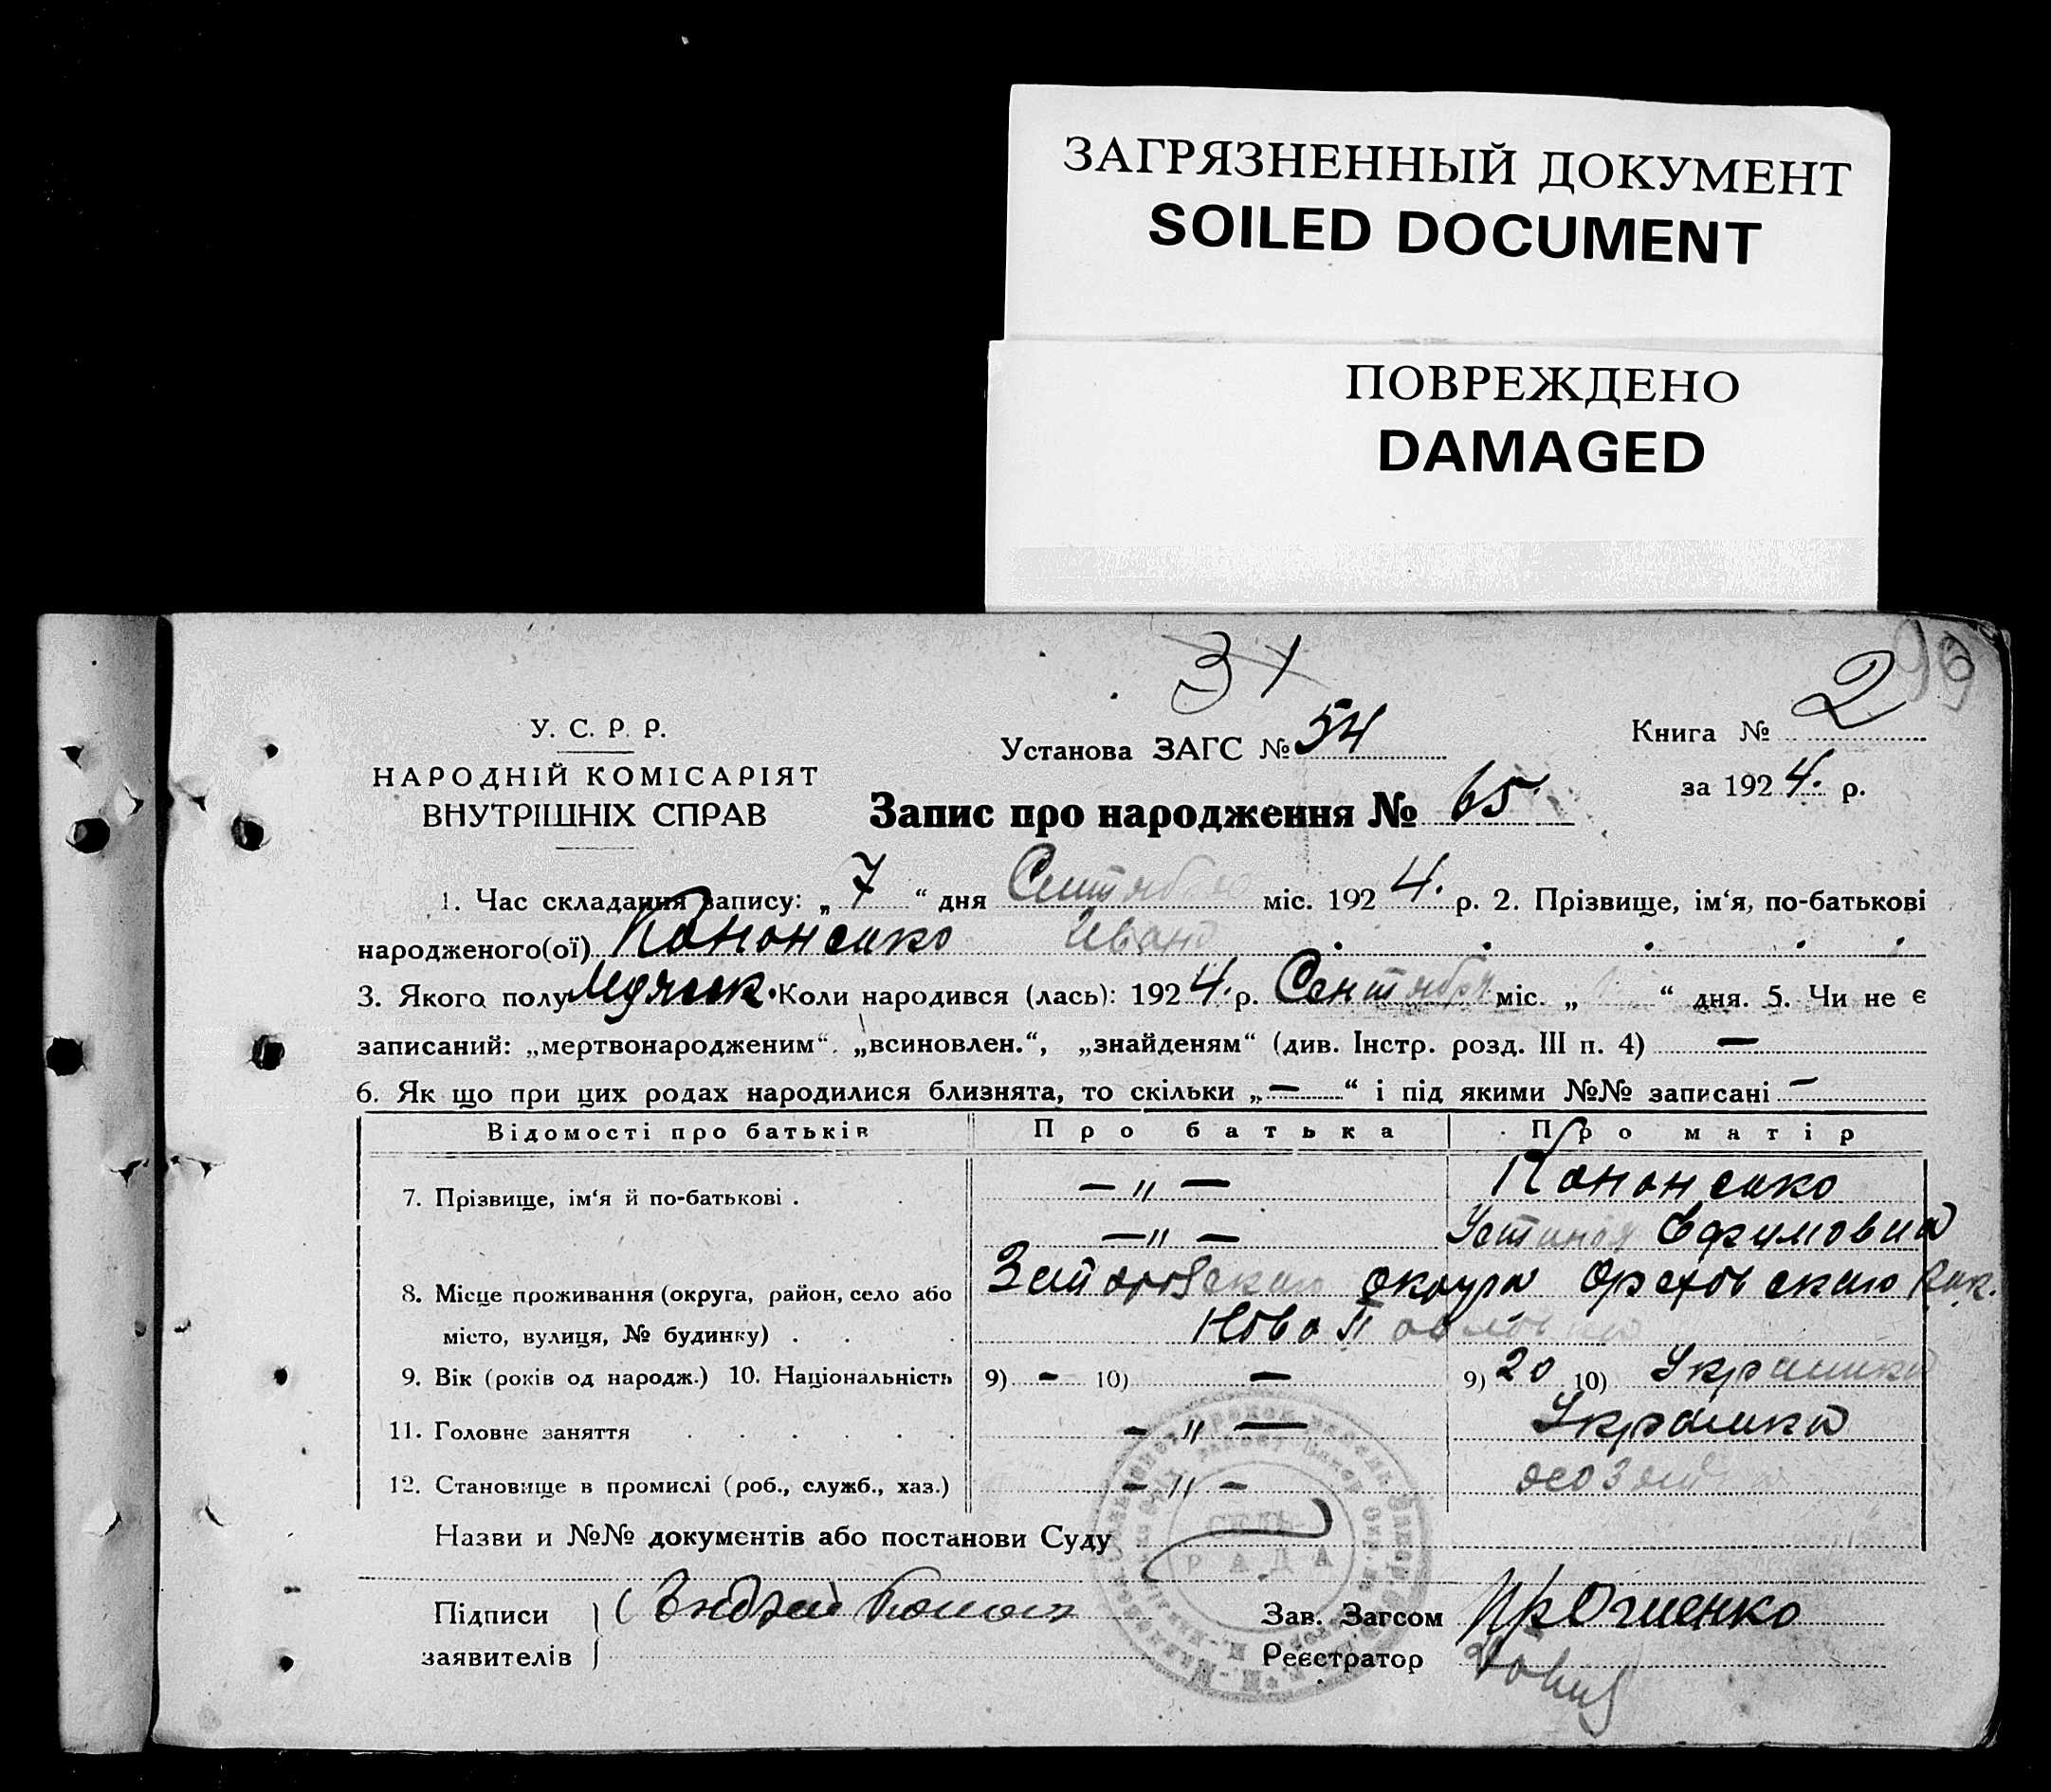 ЗАГРЯЗНЕННЫЙ ДОКУМЕНТ
SOILED DOCUMENT
ПОВРЕЖДЕНО
DAMAGED
31
99
У. С. Р. Р.
НАРОДНІЙ КОМІСАРІЯТ
ВНУТРІШНІХ СПРАВ
Установа ЗАГС № 54
Книга № 2
за 1924. р.
Запис про народження № 65
1. Час складання запису: „ 7 “ дня Сентября міс. 1924. р. 2. Прізвище, ім‘я, по-батькові
народженого(ої) Кононенко Иван
3. Якого полу Мужск. Коли народився (лась): 1924. р. Сентября міс. „ “ дня. 5. Чи не є
записаний: „мертвонародженим“, „всиновлен.“, „знайденям“ (див. Інстр. розд. III п. 4) —
6. Як що при цих родах народилися близнята, то скільки „—“ і під якими №№ записані —
Відомості про батьків Про батька Про матір
7. Прізвище, ім‘я й по-батькові . — " — Кононенко
— " — Устиния Ефимовна
8. Місце проживання (округа, район, село або Запорожскаго округа Ореховскаго
місто, вулиця, № будинку) . Ново Павловка
9. Вік (років од народж.) 10. Національність 9) — 10) — 9) 20 10) Украинка
11. Головне заняття — " — Украинка
12. Становище в промислі (роб., служб., хаз.) — " —
Назви и №№ документів або постанови Суду
СЕЛЬ-
РАДА
Підписи
заявителів
Зав. Загсом
Реєстратор